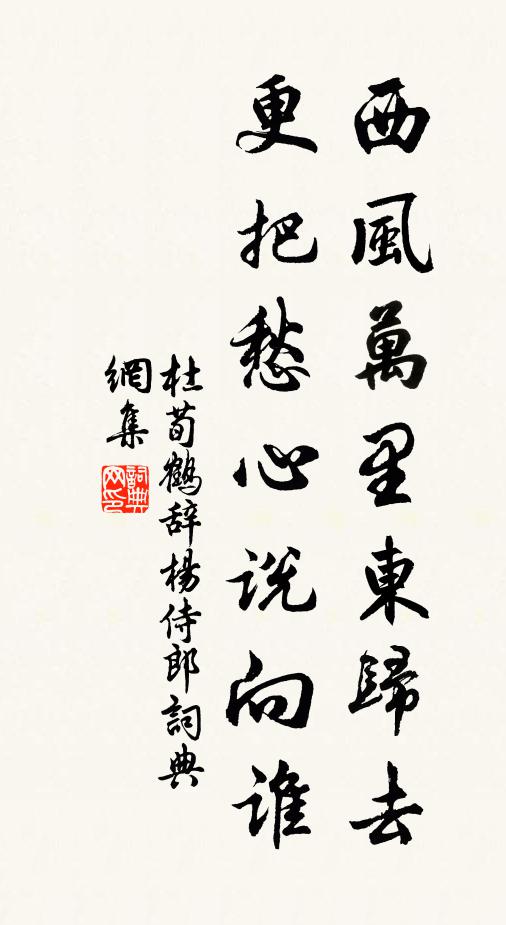 西風萬里東歸去
更把愁心説向誰
杜荀鶴辞楊侍郎詞典
網集
詞典
网印